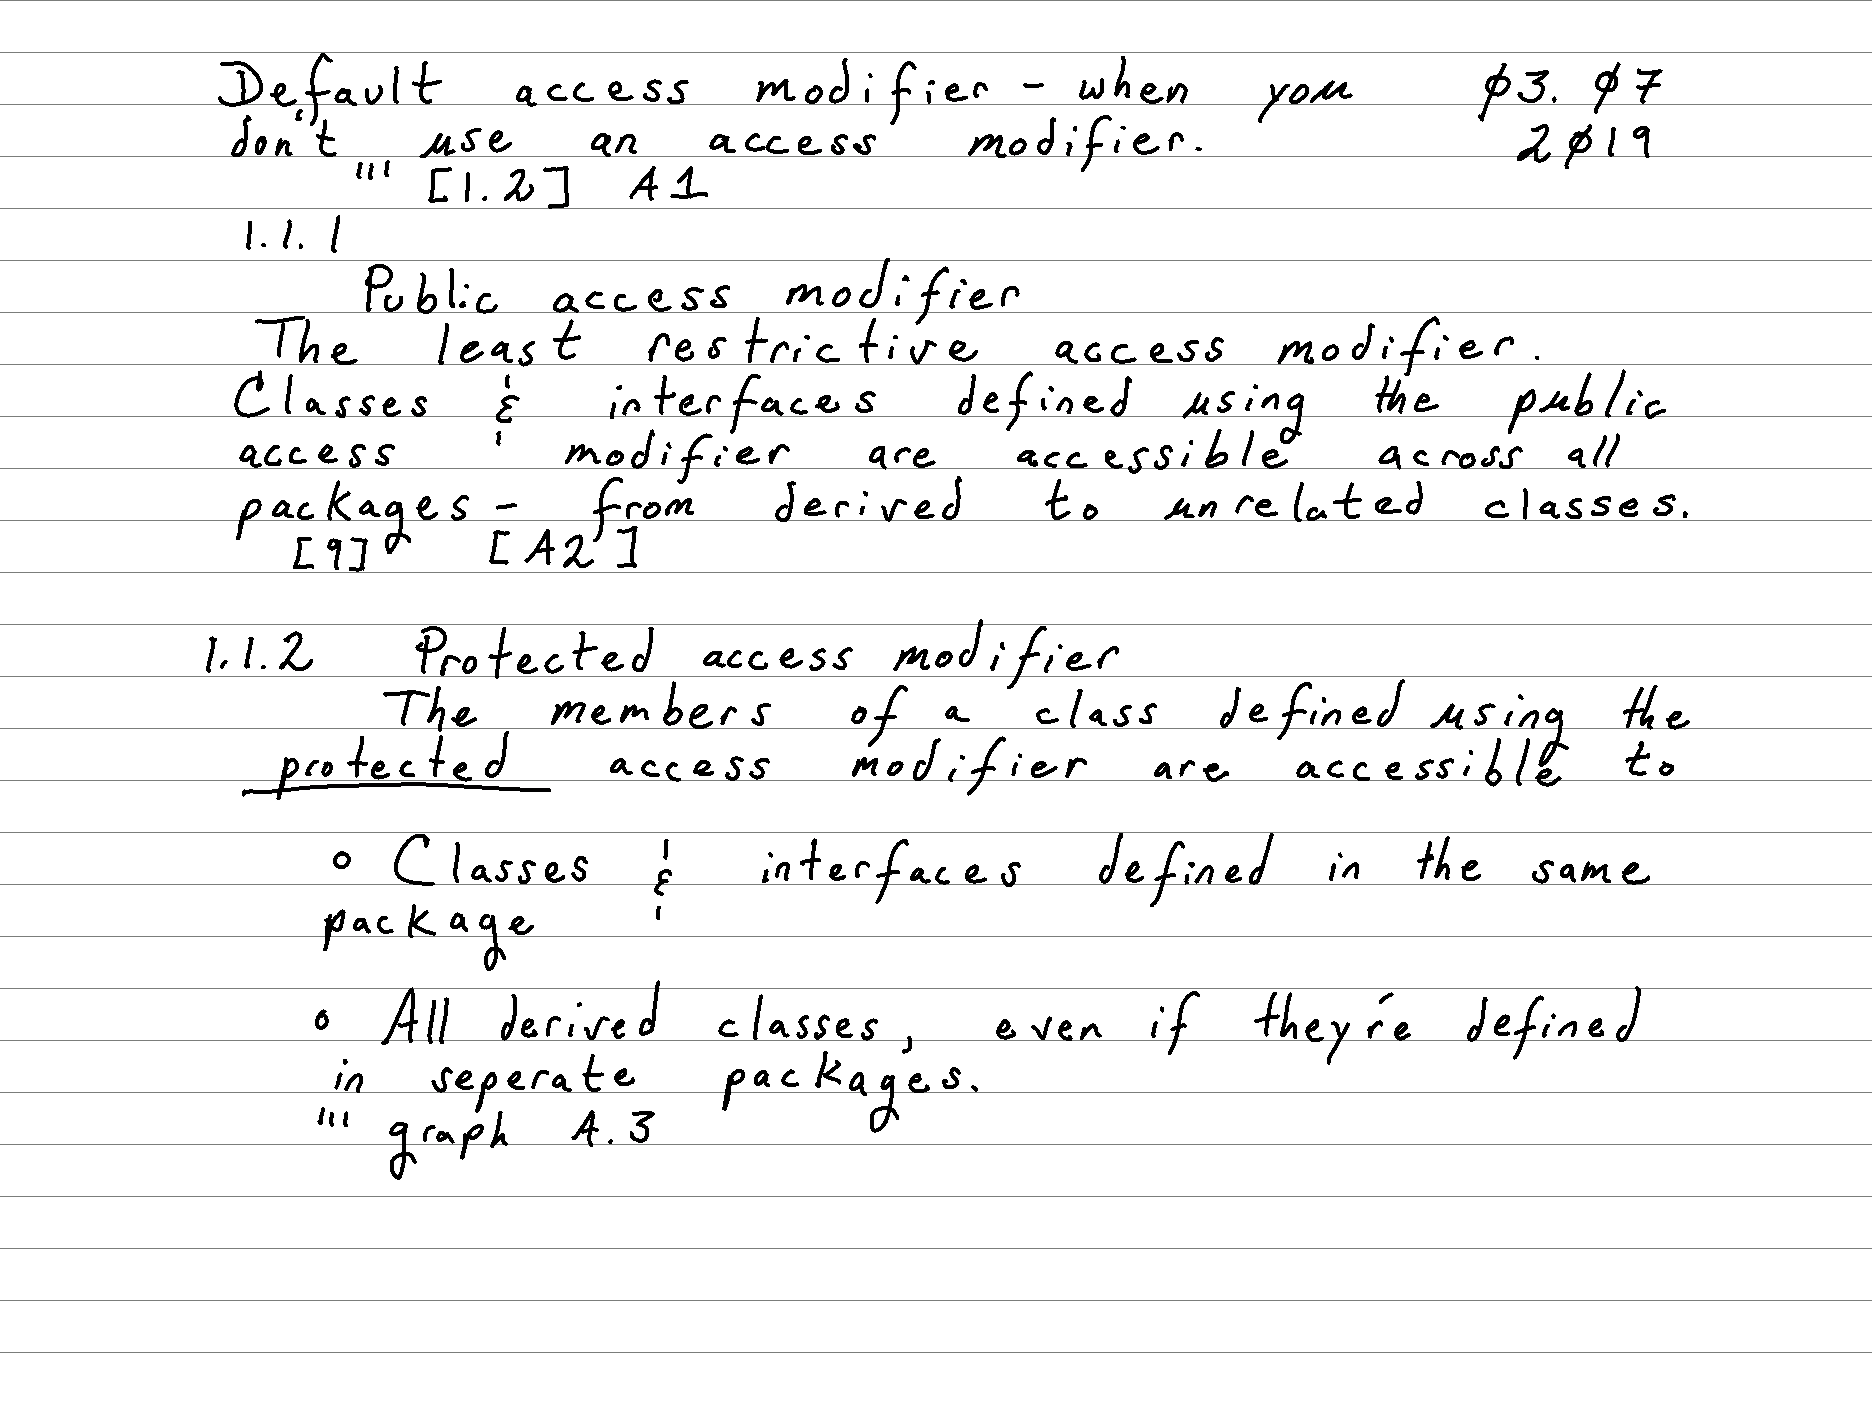 Default access modifier - when you 03.07
don't use an access modifier. 2019
''' [1.2] A1
1.1.1
Public access modifier
The least restrictive access modifier.
Classes & interfaces defined using the public
access modifier are accessible across all
packages - from derived to unrelated classes.
[9] [A2]
1.1.2 Protected access modifier
The members of a class defined using the
protected access modifier are accessible to
o Classes & interfaces defined in the same
package
o All derived classes, even if they're defined
in seperate packages.
''' graph A.3